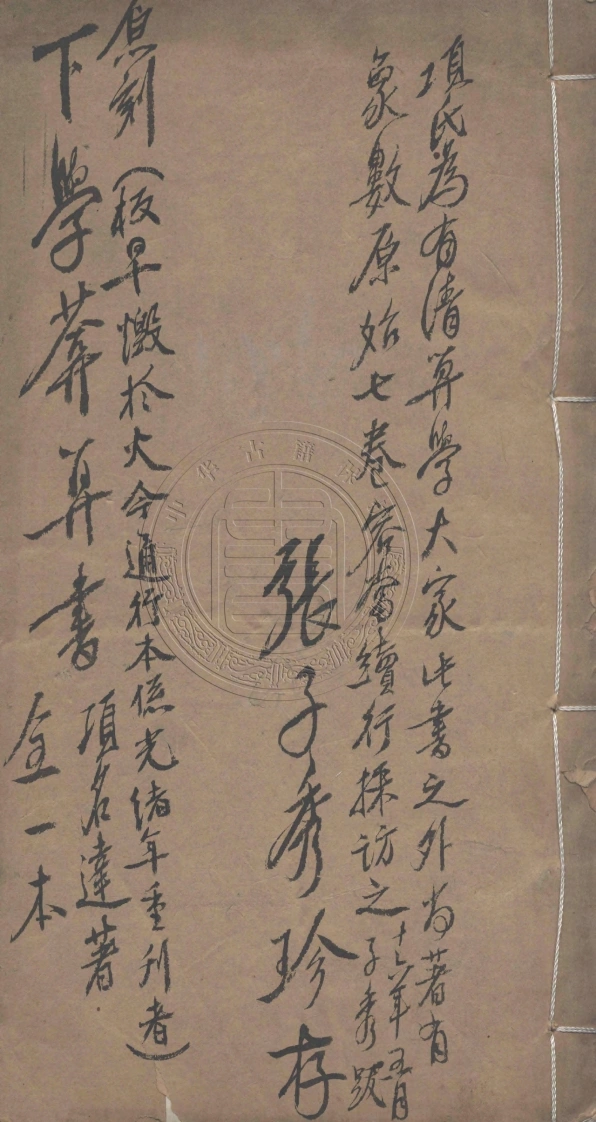 項氏為有清算學大家此書之外尚著有
象數原始七卷容當續行採訪之十六年五月子秀跋
張子秀珍存
原刻(板早燬於火今通行本係光緒年重刊者)
下學葊算書項名達著
全一本